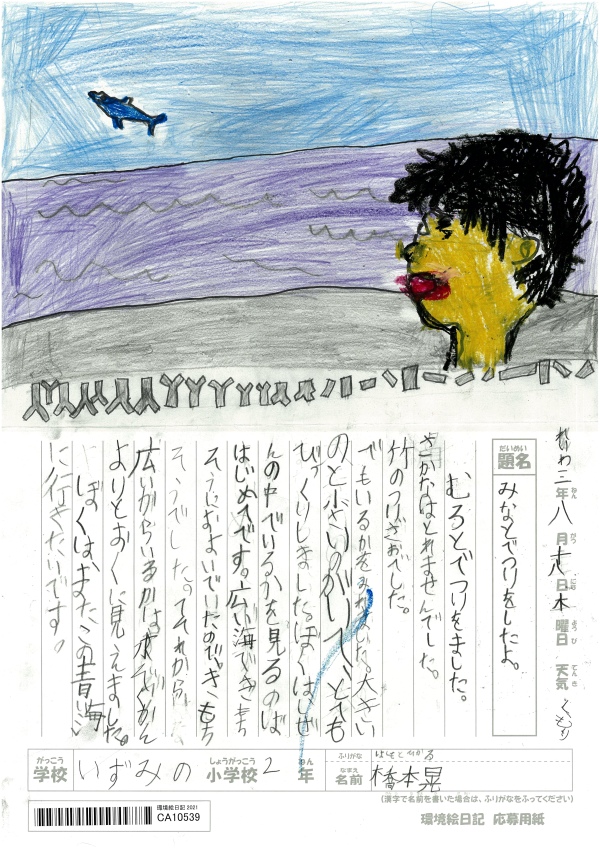 れいわ三年八月十九日木曜日 天気くもり
ねん がつ にち ようび てんき
だいめい
題名
みなとでつりをしたよ。
むろとでつりをました。
さかなはとれませんでした。
竹のつりざおでした。
でもいるかをみれました。大きい
のと小さいのがいて、とても
びっくりしました。ぼくはしぜ
んの中でいるかを見るのは
はじめてです。広い海できもち
そうにおよいでいたので。きもち
そうでした。それから、
広いからいるかは水ぞくかん
よりとおくに見えました。
ぼくは、またこの青い海
に行きたいです。
がっこう しょうがっこう ねん
学校 いずみの 小学校 2 年
ふりがな はしもとひかる
なまえ
名前 橋本晃
(漢字で名前を書いた場合は、ふりがなをふってください)
環境絵日記 2021
CA10539
環境絵日記 応募用紙